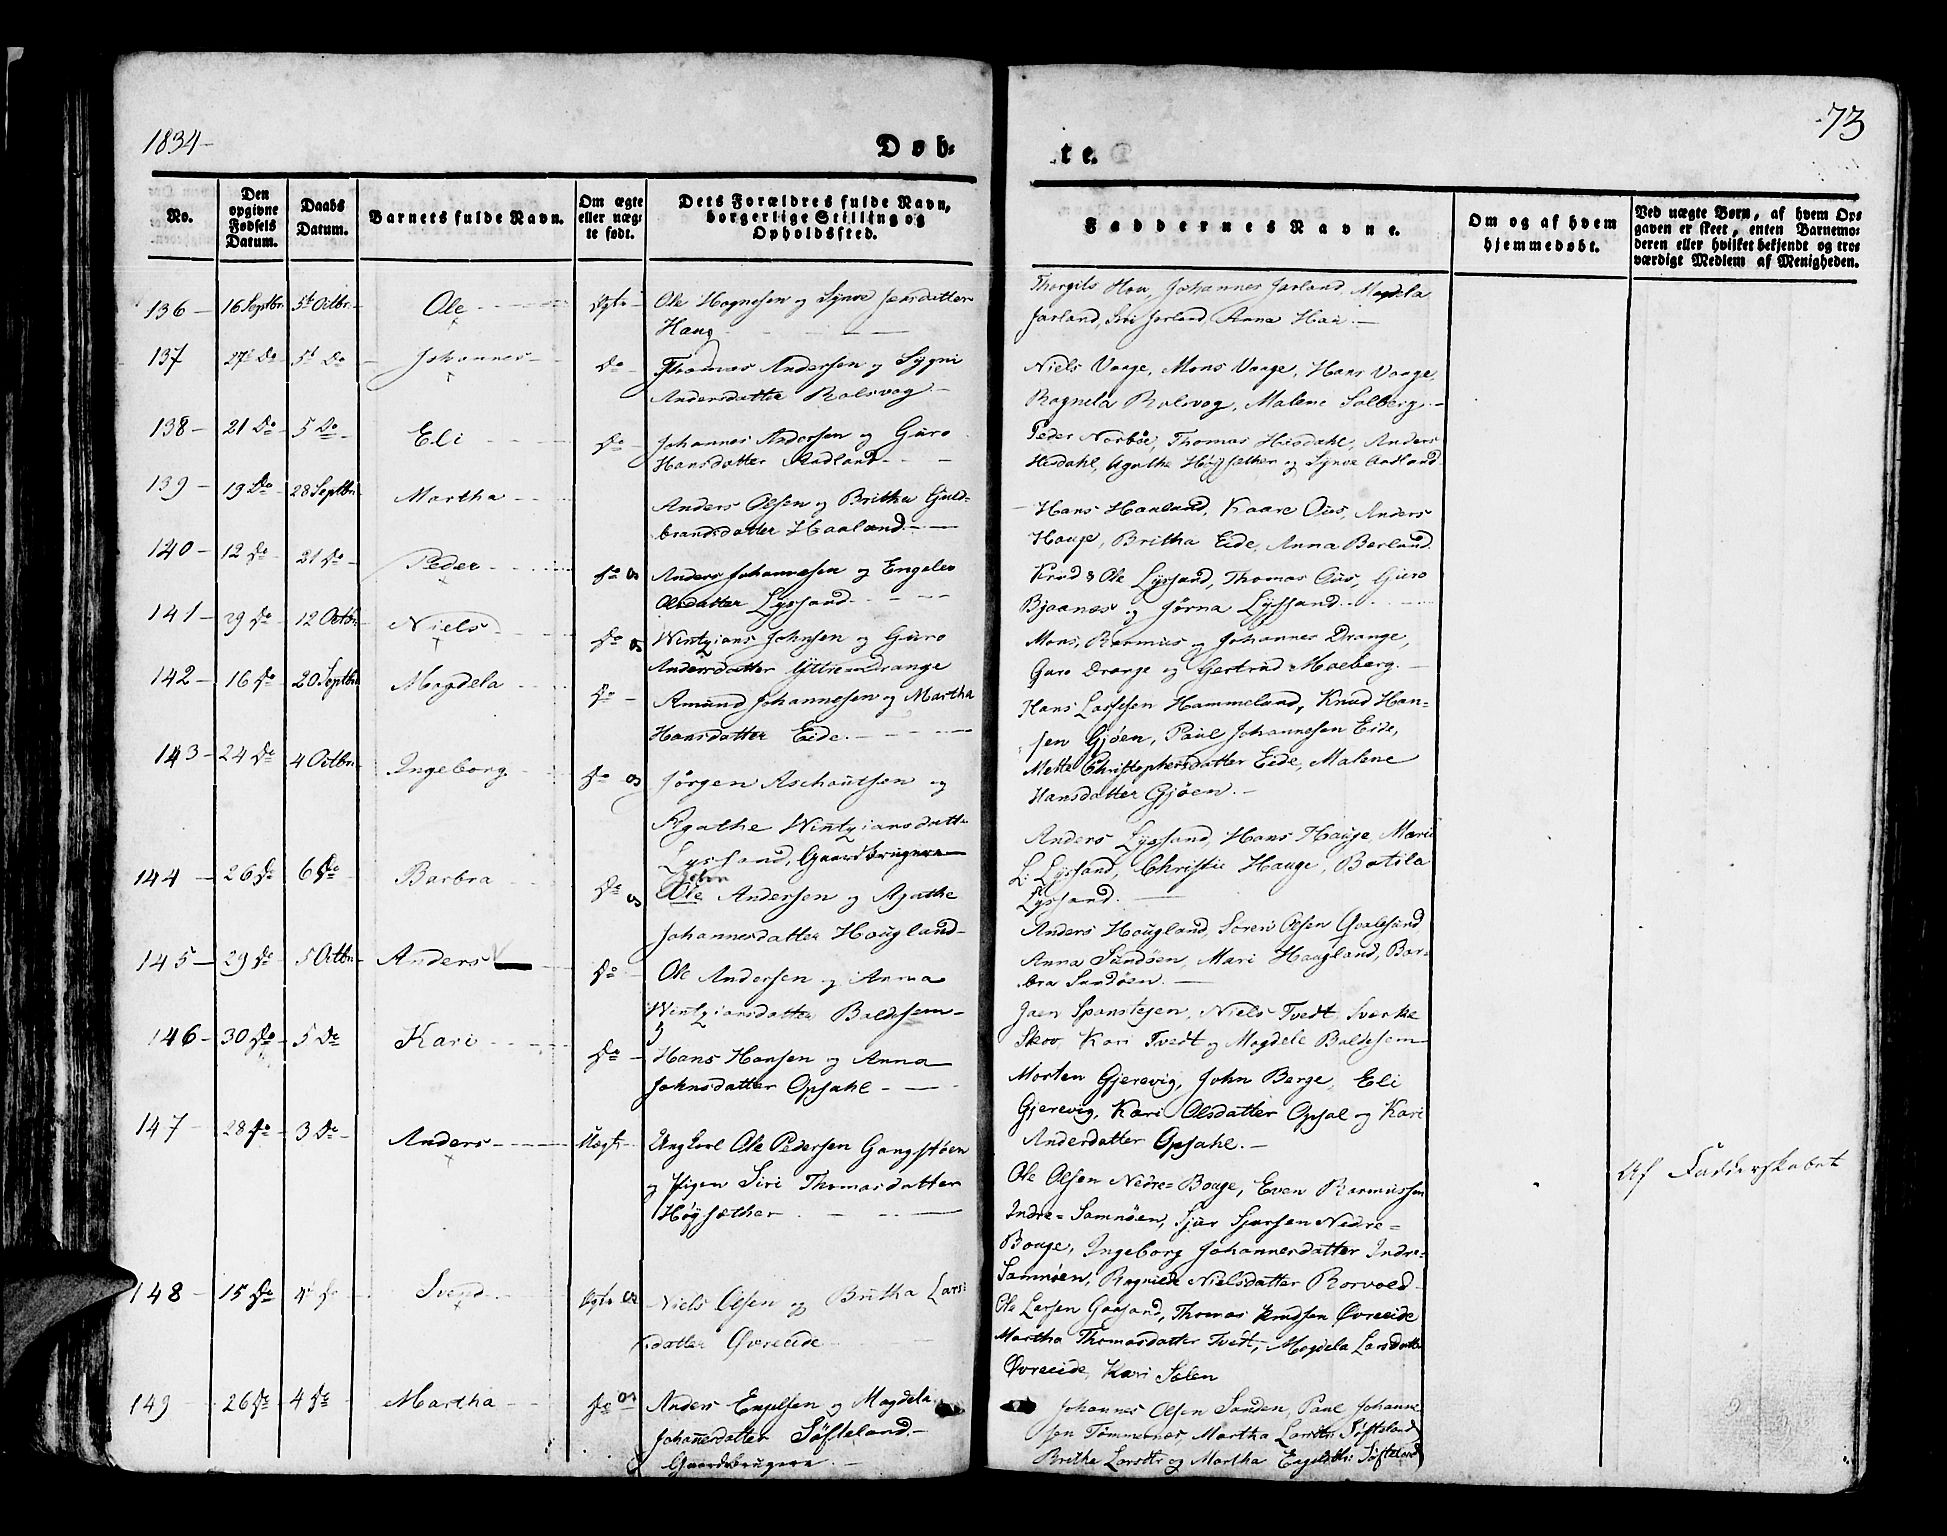 1834
Døb=
te.
73
No.
Den opgivne Fødsels Datum.
Daabs Datum.
Barnets fulde Navn.
Om ægte eller uæg= te født.
Dets Forældres fulde Navn, borgerlige Stilling og Opholdssted.
Faddernes Navne.
Om og af hvem hjemmedøbt.
Ved uægte Børn, af hvem Op= gaven er skeet, enten Barnemo= deren eller hvilket bekjendt og tro= værdigt Medlem af Menigheden.
136 - 16 Septbr. 5t Octbr. Ole Ægte Ole Hognesen og Synve Jensdatter
Haug
Thorgils Hou, Johannes Jarland, Magdela
Jarland, Siri Jarland, Anna Hou.
137 27d Do 5d Do Johannes Do Thomas Andersen og Sygni
Andersdatter Rolsvog
Niels Vaage, Mons Vaage, Hans Vaage,
Ragnela Rolsvog, Malene Solberg.
138 - 21 Do 5 Do Eli Do Johannes Andersen og Guro
Hansdatter Aadland
Peder Norbøe, Thomas Hisdahl, Anders
Hisdahl, Agathe Høysæther og Synve Aadland
139 19 Do 28 Septbr Martha Anders Olsen og Britha Guld-
brandsdatter Haaland
Hans Haaland, Kaare Ous, Anders
Hauge, Britha Eide, Anna Berland
140 - 12 Do 21 Do Peder Do Anders Johannesen og Engelev
Olsdatter Lyssand
Knud & Ole Lyssand, Thomas Ous, Guro
Bjaanæs og Jørna Lyssand
141 - 29 Do 12 Octbr Niels Do Wintzians Johnsen og Guro
Andersdatter Yttre=Drange
Mons, Rasmus og Johannes Drange,
Guro Drange og Gertrud Moeberg.
142 - 16 Do 20 Septbr Magdela Do Amund Johannesen og Martha
Hansdatter Eide.
Hans Larsesen Hammeland, Knud Han=
sen Gjøen, Paul Johannesen Eide,
Mette Christophersdatter Eide, Malene
Hansdatter Gjøen.
143 - 24 Do 4 Octbr Ingeborg Do Jørgen Aschautsen og
Agathe Wintziansdatter
Lyssand, Gaardbrugere
Anders Lyssand, Hans Hauge, Mari
L: Lyssand, Christie Hauge, Botila
Lyssand.
144 - 26 Do 6 Do Barbra Do Ole Andersen og Agathe
Johannesdatter Hougland
Anders Hougland, Søren Olsen Qvalesund
Anna Sundøen, Mari Hougland, Bar=
bra Sundøen.
145 - 29 Do 5 Octbr Anders Do Ole Andersen og Anna
Wintziansdatter Boldesem
Niels Tvedt, Sverke
Skov, Kari Tvedt og Magdele Boldesem
146 - 30 Do 5 Do Kari Do Hans Hansen og Anna
Johnsdatter Opsahl
Morten Gjerevig, John Berge, Eli
Gjerevig, Kari Olsdatter Opsal og Kari
Andersdatter Opsahl.
147 28 Do 3 Do Anders Uægte Ungkarl Ole Pedersen Gangstøen
og Pigen Siri Thomasdatter
Høysæther
Ole Olsen Nedre=Bouge, Even Rasmussen
Indre=Samnøen, Sjur Sjursen Nedre=
Bouge, Ingeborg Johannesdatter Indre=
Samnøen, Ragnilde Nielsdatter Rorvold
Af Fadderskabet
148 15 Do 4 Do Svend Ægte Niels Olsen og Britha Lars:
datter Øvreeide
Ole Larsen Gaasand, Thomas Knudsen Øvreeide
Martha Thomasdatter Tvedt, Magdela Larsdatter
Øvreeide, Kari Solen
149 26 Do 4 Do Martha Do Anders Engelsen og Magdela
Johannesdatter Søfteland
Gaardbrugere
Johannes Olsen Sanden, Paul Johanne
sen Tømmernes, Martha Larsdtr Søfteland
Britha Larsdtr og Martha Engelsdtr: Søfteland